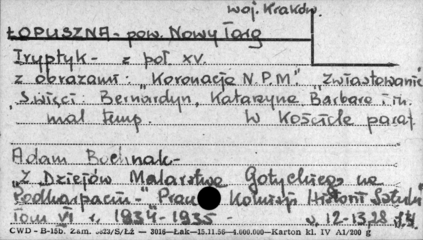 woj. Kraków.
ŁOPUSZNA - pow. Nowy Targ
Tryptyk - z poł. XV.
z obrazami: "Koronacja N.P.M." "Zwiastowanie
"Święci: Bernardyn, Katarzyna Barbara i in.
mal temp. W Kościele paraf.
Adam Bochnak -
"Z Dziejów Malarstwa Gotyckiego na
Podkarpaciu - " Prace Komisji Historii Sztuki
Tom VI r. 1934-1935 - 12-13,28
CWD - B-15b. Zam. S/Łż — 3016—Łak—15.11.56—4.000.000—Karton kl. IV A1/200 g